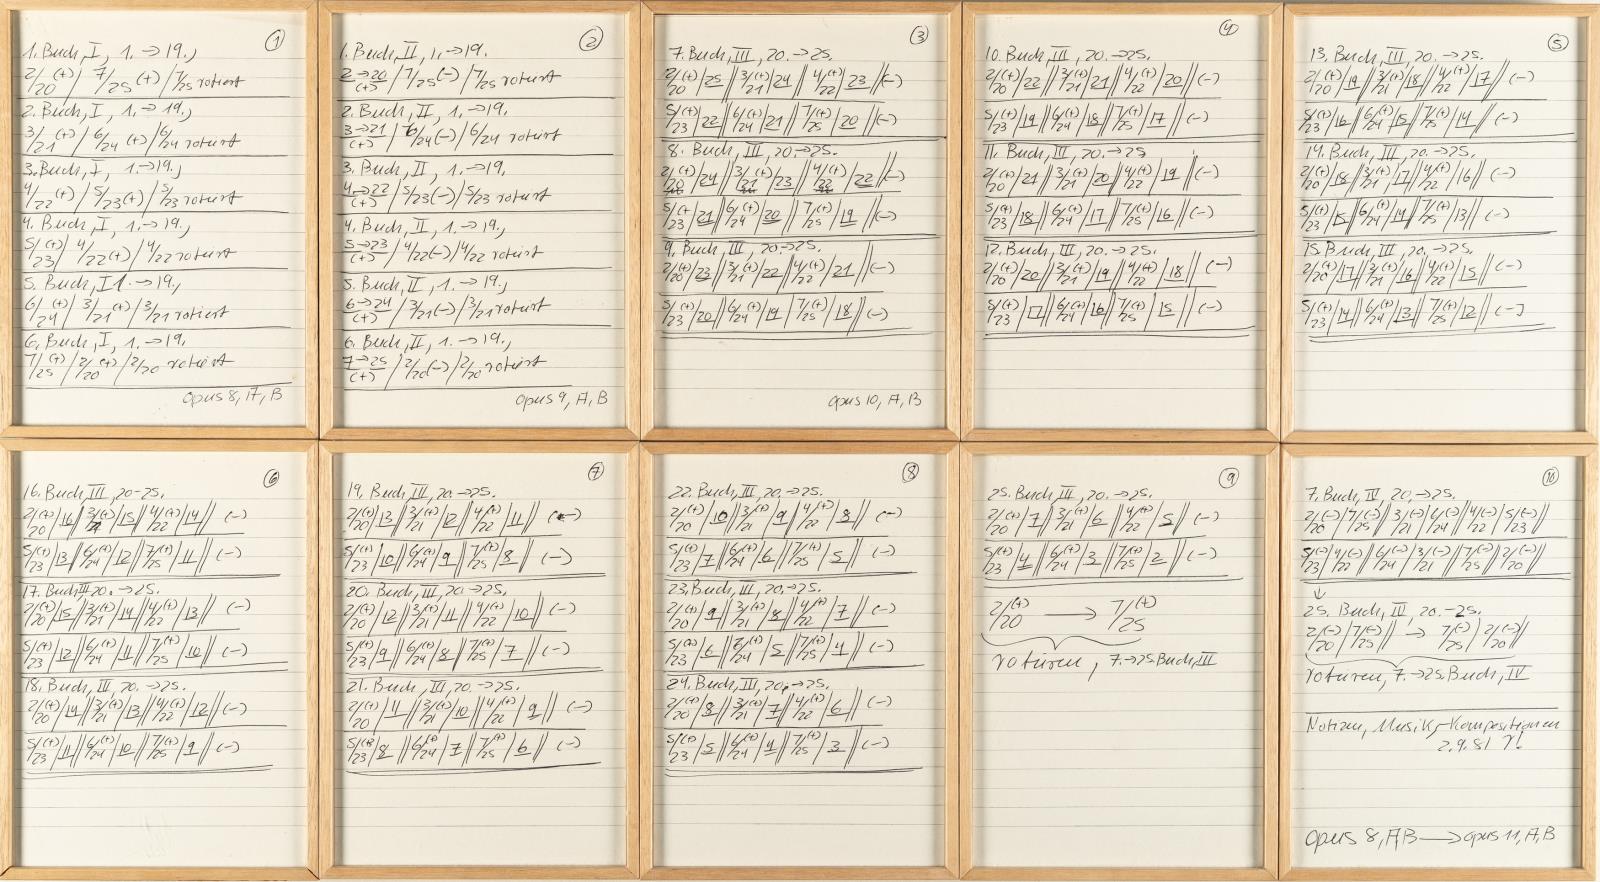 ①
1. Buch, I, 1. → 19.,
2/20 (+) / 7/25 (+) / 7/25 rotiert
2. Buch, I, 1. → 19.,
3/21 (+) / 6/24 (+) / 6/24 rotiert
3. Buch, I, 1. → 19.,
4/22 (+) / 5/23 (+) / 5/23 rotiert
4. Buch, I, 1. → 19.,
5/23 (+) / 4/22 (+) / 4/22 rotiert
5. Buch, I 1. → 19.,
6/24 (+) / 3/21 (+) / 3/21 rotiert
6. Buch, I, 1. → 19.
7/25 (+) / 2/20 (+) / 2/20 rotiert
opus 8, A, B
②
1. Buch, II, 1. → 19.
2 → 20 (+) / 7/25 (-) / 7/25 rotiert
2. Buch, II, 1. → 19.
3 → 21 (+) / 6/24 (-) / 6/24 rotiert
3. Buch, II, 1. → 19.
4 → 22 (+) / 5/23 (-) / 5/23 rotiert
4. Buch, II, 1. → 19.,
5 → 23 (+) / 4/22 (-) / 4/22 rotiert
5. Buch, II, 1. → 19.,
6 → 24 (+) / 3/21 (-) / 3/21 rotiert
6. Buch, II, 1. → 19.,
7 → 25 (+) / 2/20 (-) / 2/20 rotiert
opus 9, A, B
③
7. Buch, III, 20. → 25.
2/20 (+) / 25 // 3/21 (+) / 24 // 4/22 (+) / 23 // (-)
5/23 (+) / 22 // 6/24 (+) / 21 // 7/25 (+) / 20 // (-)
8. Buch, III, 20. → 25.
2/20 (+) / 24 // 3/21 (+) / 23 // 4/22 (+) / 22 // (-)
5/23 (+) / 21 // 6/24 (+) / 20 // 7/25 (+) / 19 // (-)
9. Buch, III, 20. → 25.
2/20 (+) / 23 // 3/21 (+) / 22 // 4/22 (+) / 21 // (-)
5/23 (+) / 20 // 6/24 (+) / 19 / 7/25 (+) / 18 // (-)
opus 10, A, B
④
10. Buch, III, 20. → 25.
2/20 (+) / 22 // 3/21 (+) / 21 // 4/22 (+) / 20 // (-)
5/23 (+) / 19 // 6/24 (+) / 18 // 7/25 (+) / 17 // (-)
11. Buch, III, 20. → 25
2/20 (+) / 21 // 3/21 (+) / 20 // 4/22 (+) / 19 // (-)
5/23 (+) / 18 // 6/24 (+) / 17 // 7/25 (+) / 16 // (-)
12. Buch, III, 20. → 25.
2/20 (+) / 20 // 3/21 (+) / 19 // 4/22 (+) / 18 // (-)
5/23 (+) / 17 // 6/24 (+) / 16 // 7/25 (+) / 15 // (-)
⑤
13. Buch, III, 20. → 25.
2/20 (+) / 19 // 3/21 (+) / 18 // 4/22 (+) / 17 // (-)
5/23 (+) / 16 // 6/24 (+) / 15 // 7/25 (+) / 14 // (-)
14. Buch, III, 20. → 25.
2/20 (+) / 18 // 3/21 (+) / 17 // 4/22 (+) / 16 // (-)
5/23 (+) / 15 // 6/24 (+) / 14 // 7/25 (+) / 13 // (-)
15. Buch, III, 20. → 25.
2/20 (+) / 17 // 3/21 (+) / 16 // 4/22 (+) / 15 // (-)
5/23 (+) / 14 // 6/24 (+) / 13 // 7/25 (+) / 12 // (-)
⑥
16. Buch, III, 20-25.
2/20 (+) / 16 // 3/21 (+) / 15 // 4/22 (+) / 14 // (-)
5/23 (+) / 13 // 6/24 (+) / 12 // 7/25 (+) / 11 // (-)
17. Buch, III 20. → 25.
2/20 (+) / 15 // 3/21 (+) / 14 // 4/22 (+) / 13 // (-)
5/23 (+) / 12 // 6/24 (+) / 11 // 7/25 (+) / 10 // (-)
18. Buch, III, 20. → 25.
2/20 (+) / 14 // 3/21 (+) / 13 // 4/22 (+) / 12 // (-)
5/23 (+) / 11 // 6/24 (+) / 10 // 7/25 (+) / 9 // (-)
⑦
19. Buch, III, 20. → 25.
2/20 (+) / 13 // 3/21 (+) / 12 // 4/22 (+) / 11 // (-)
5/23 (+) / 10 // 6/24 (+) / 9 // 7/25 (+) / 8 // (-)
20. Buch, III, 20. → 25.
2/20 (+) / 12 // 3/21 (+) / 11 // 4/22 (+) / 10 // (-)
5/23 (+) / 9 // 6/24 (+) / 8 // 7/25 (+) / 7 // (-)
21. Buch, III, 20. → 25.
2/20 (+) / 11 // 3/21 (+) / 10 // 4/22 (+) / 9 // (-)
5/23 (+) / 8 // 6/24 (+) / 7 // 7/25 (+) / 6 // (-)
⑧
22. Buch, III, 20. → 25.
2/20 (+) / 10 // 3/21 (+) / 9 // 4/22 (+) / 8 // (-)
5/23 (+) / 7 // 6/24 (+) / 6 // 7/25 (+) / 5 // (-)
23. Buch, III, 20. → 25.
2/20 (+) / 9 // 3/21 (+) / 8 // 4/22 (+) / 7 // (-)
5/23 (+) / 6 // 6/24 (+) / 5 // 7/25 (+) / 4 // (-)
24. Buch, III, 20. → 25.
2/20 (+) / 8 // 3/21 (+) / 7 // 4/22 (+) / 6 // (-)
5/23 (+) / 5 // 6/24 (+) / 4 // 7/25 (+) / 3 // (-)
⑨
25. Buch, III, 20. → 25.
2/20 (+) / 7 // 3/21 (+) / 6 // 4/22 (+) / 5 // (-)
5/23 (+) / 4 // 6/24 (+) / 3 // 7/25 (+) / 2 // (-)
2/20 (+) → 7/25 (+)
rotieren, 7. → 25. Buch, III
⑩
7. Buch, IV, 20. → 25.
2/20 (-) / 7/25 (-) // 3/21 (-) / 6/24 (-) // 4/22 (-) / 5/23 (-) //
5/23 (-) / 4/22 (-) // 6/24 (-) / 3/21 (-) // 7/25 (-) / 2/20 (-) //
↓
25. Buch, IV, 20. - 25.
2/20 (-) / 7/25 (-) // → 7/25 (-) / 2/20 (-) //
rotieren, 7. → 25. Buch, IV
Notizen, Musik-Kompositionen
2.9.81
opus 8, A, B → opus 11, A, B